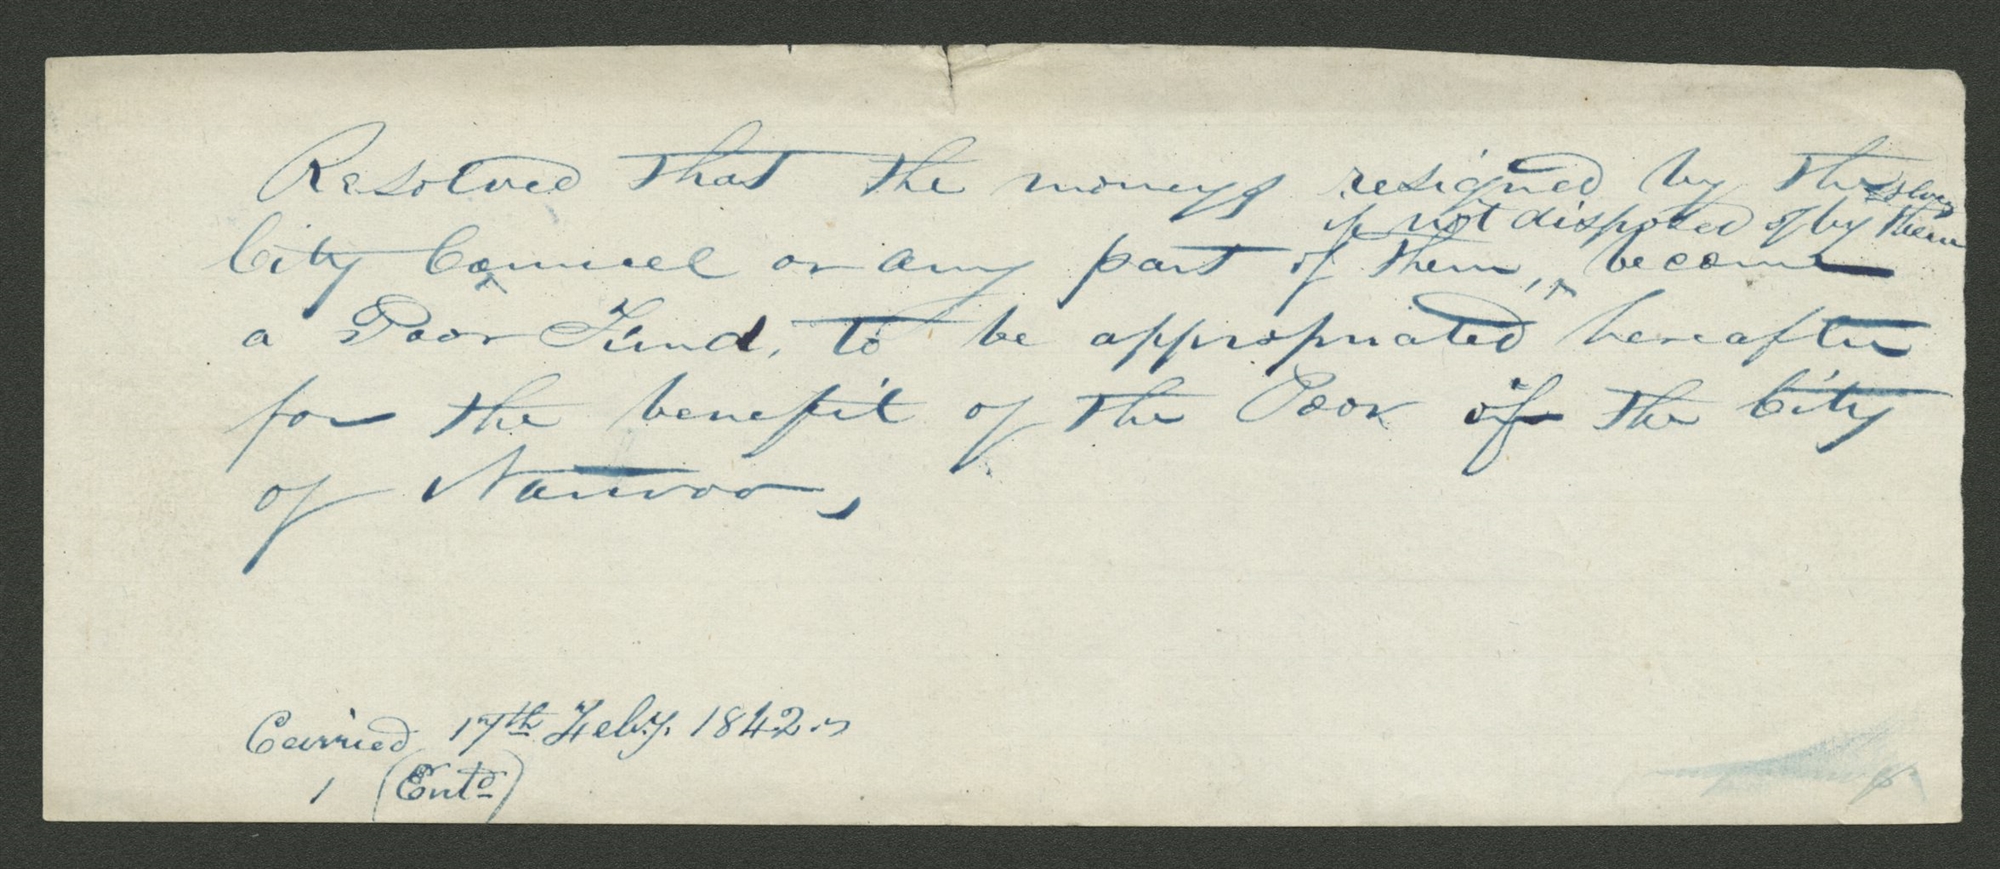 Resolved that the moneys resigned by the
if not disposed of by them
City Council or any part of them, become
a Poor Fund, to be appropriated hereafter
for the benefit of the Poor of the City
of Nauvoo,
Carried 17th Feby. 1842.
1 (Entd)